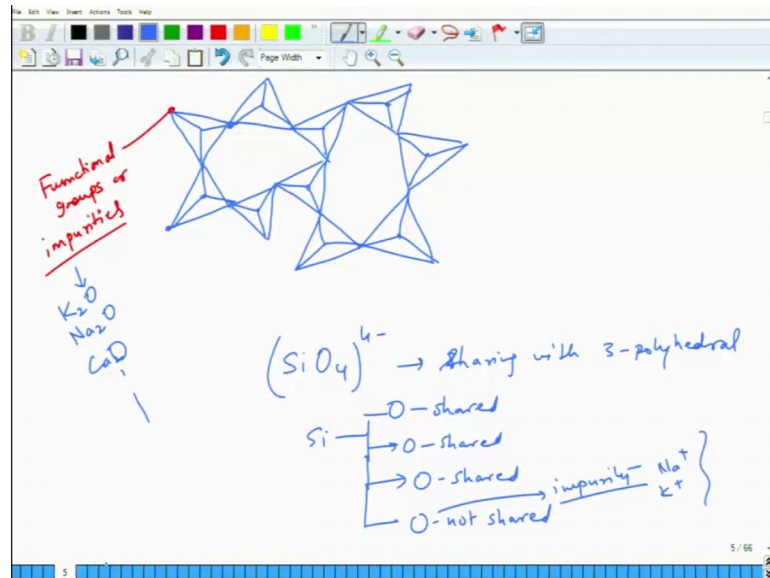 File Edit View Insert Actions Tools Help
B I
Page Width
Functional
groups or
impurities
K2O
Na2O
CaO
(SiO4)4- → Sharing with 3-polyhedral
O-shared
Si → O-shared
→ O-shared
O-not shared → impurity- Na+
K+
5/66
5